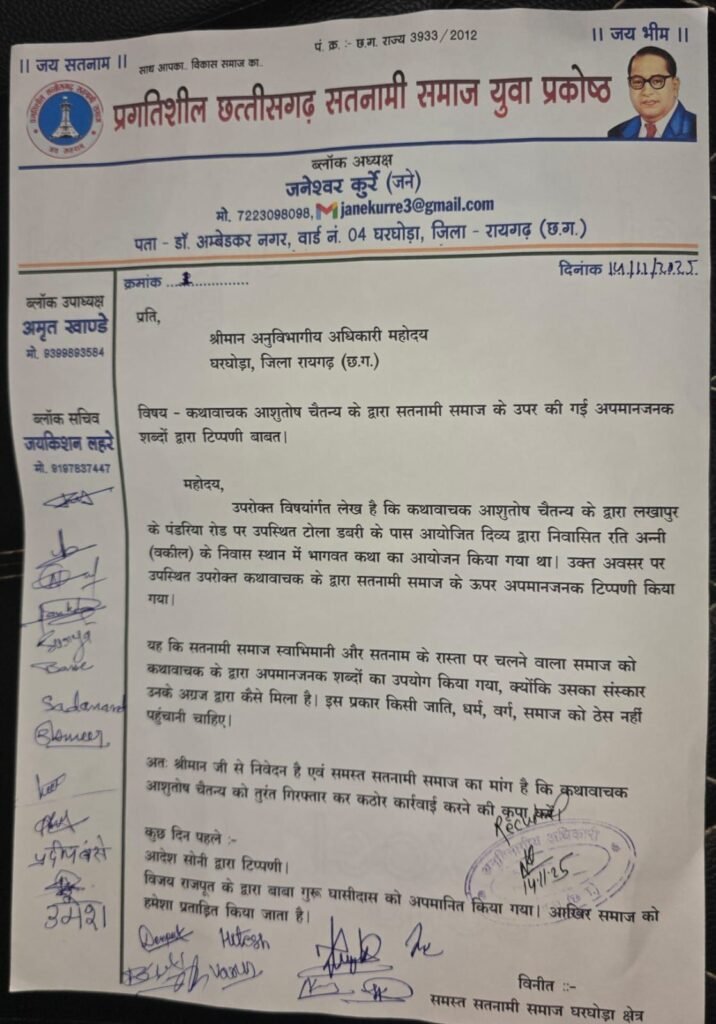 पं. क्र. :- छ.ग. राज्य 3933/2012
|| जय सतनाम ||
साथ आपका.. विकास समाज का..
|| जय भीम ||
प्रगतिशील छत्तीसगढ़ सतनामी समाज युवा प्रकोष्ठ
ब्लॉक अध्यक्ष
जनेश्वर कुर्रे (जने)
मो. 7223098098, janekurre3@gmail.com
पता - डॉ. अम्बेडकर नगर, वार्ड नं. 04 घरघोड़ा, जिला - रायगढ़ (छ.ग.)
क्रमांक ...1...............
दिनांक 14/11/2025.
ब्लॉक उपाध्यक्ष
अमृत खाण्डे
मो. 9399893584
ब्लॉक सचिव
जयकिशन लहरे
मो. 9197837447
प्रति,
श्रीमान अनुविभागीय अधिकारी महोदय
घरघोड़ा, जिला रायगढ़ (छ.ग.)
विषय - कथावाचक आशुतोष चैतन्य के द्वारा सतनामी समाज के उपर की गई अपमानजनक
शब्दों द्वारा टिप्पणी बाबत।
महोदय,
उपरोक्त विषयांर्गत लेख है कि कथावाचक आशुतोष चैतन्य के द्वारा लखापुर
के पंडरिया रोड पर उपस्थित टोला डबरी के पास आयोजित दिव्य द्वारा निवासित रति अन्नी
(वकील) के निवास स्थान में भागवत कथा का आयोजन किया गया था। उक्त अवसर पर
उपस्थित उपरोक्त कथावाचक के द्वारा सतनामी समाज के ऊपर अपमानजनक टिप्पणी किया
गया।
यह कि सतनामी समाज स्वाभिमानी और सतनाम के रास्ता पर चलने वाला समाज को
कथावाचक के द्वारा अपमानजनक शब्दों का उपयोग किया गया, क्योंकि उसका संस्कार
उनके अग्रज द्वारा कैसे मिला है। इस प्रकार किसी जाति, धर्म, वर्ग, समाज को ठेस नहीं
पहुंचानी चाहिए।
अतः श्रीमान जी से निवेदन है एवं समस्त सतनामी समाज का मांग है कि कथावाचक
आशुतोष चैतन्य को तुरंत गिरफ्तार कर कठोर कार्रवाई करने की कृपा करें।
Received
14.11.25
अनुविभागीय अधिकारी
कुछ दिन पहले :-
आदेश सोनी द्वारा टिप्पणी।
विजय राजपूत के द्वारा बाबा गुरू घासीदास को अपमानित किया गया। आखिर समाज को
हमेशा प्रताड़ित किया जाता है।
Sadanand
उमेश
Deepak Hitesh
विनीत ::-
समस्त सतनामी समाज घरघोड़ा क्षेत्र